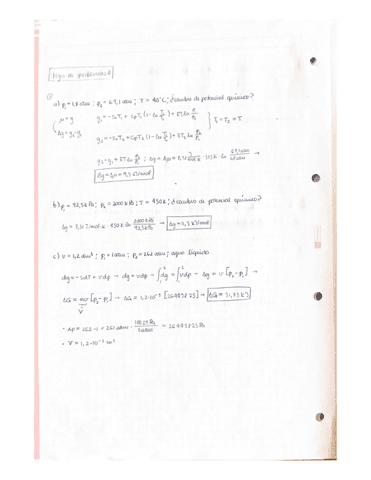 Hoja de problemas 8
①
a) p₁ = 1,8 atm ; p₂ = 69,1 atm ; T = 40°C ; ¿cambio de potencial químico?
μ = g
g₁ = -s₀T₁ + cpT₁ (1 - ln T₁/T₀) + RT₁ln p₁/p₀
T₁ = T₂ = T
Δg = g₂ - g₁
g₂ = -s₀T₂ + cpT₂ (1 - ln T₂/T₀) + RT₂ ln p₂/p₀
g₂ - g₁ = RT ln p₂/p₁ ; Δg = Δμ = 8,31 J/mol·K · 313 K · ln 69,1 atm/1,8 atm →
Δg = Δμ = 9,5 kJ/mol
b) p₁ = 92,5 kPa ; p₂ = 2000 kPa ; T = 450 K ; ¿cambio de potencial químico?
Δg = 8,31 J/mol·K · 450 K · ln 2000 kPa/92,5 kPa → Δg = 11,5 kJ/mol
c) V = 1,2 dm³ ; p₁ = 1 atm ; p₂ = 262 atm ; agua líquida
dg = -sdT + vdp → dg = vdp → ∫₁² dg = ∫₁² vdp → Δg = v [p₂ - p₁] →
ΔG = mv [p₂ - p₁] → ΔG = 1,2·10⁻³ [26445825] → ΔG = 31,73 kJ
V
· Δp = 262 - 1 = 261 atm · 101325 Pa/1 atm = 26445825 Pa
· V = 1,2·10⁻³ m³